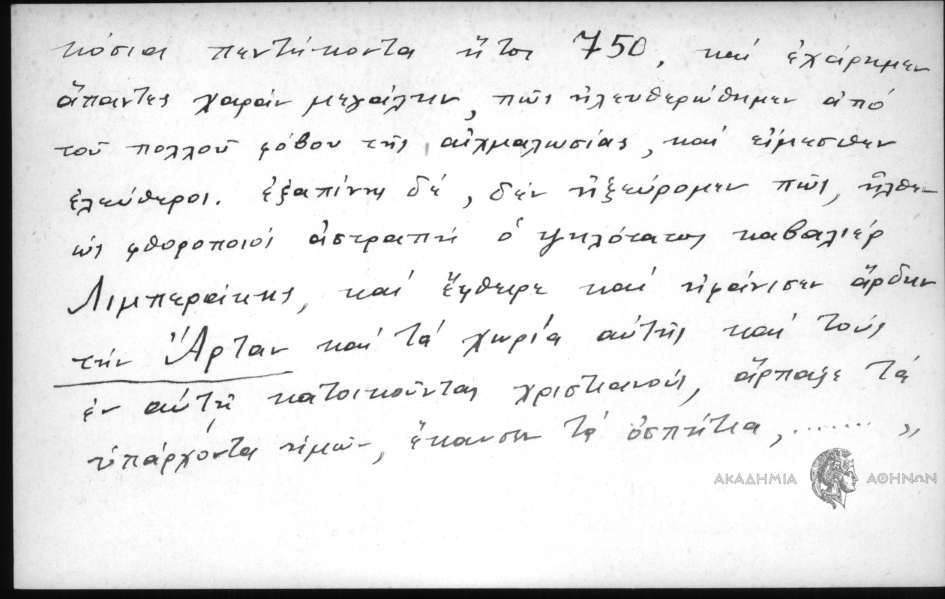 κόσιαι πεντήκοντα ἤτοι 750, καί ἐχάρημεν
ἅπαντες χαράν μεγάλην, πῶς ἠλευθερώθημεν ἀπό
τοῦ πολλοῦ φόβου τῆς αἰχμαλωσίας, καί εἴμεσθεν
ἐλεύθεροι. ἐξαπίνης δέ, δέν ἠξεύρομεν πῶς, ἦλθεν
ὡς φθοροποιός ἀστραπή ὁ ὑψηλότατος καβαλιέρ
Λιμπεράκης, καί ἔφθειρε καί ἠφάνισεν ἄρδην
τήν Ἄρταν καί τά χωρία αὐτῆς καί τούς
ἐν αὐτῇ κατοικοῦντας χριστιανούς, ἅρπαξε τά
ὑπάρχοντα ἡμῶν, ἔκαυσεν τά ὁσπήτια, ....... „
ΑΚΑΔΗΜΙΑ ΑΘΗΝΩΝ